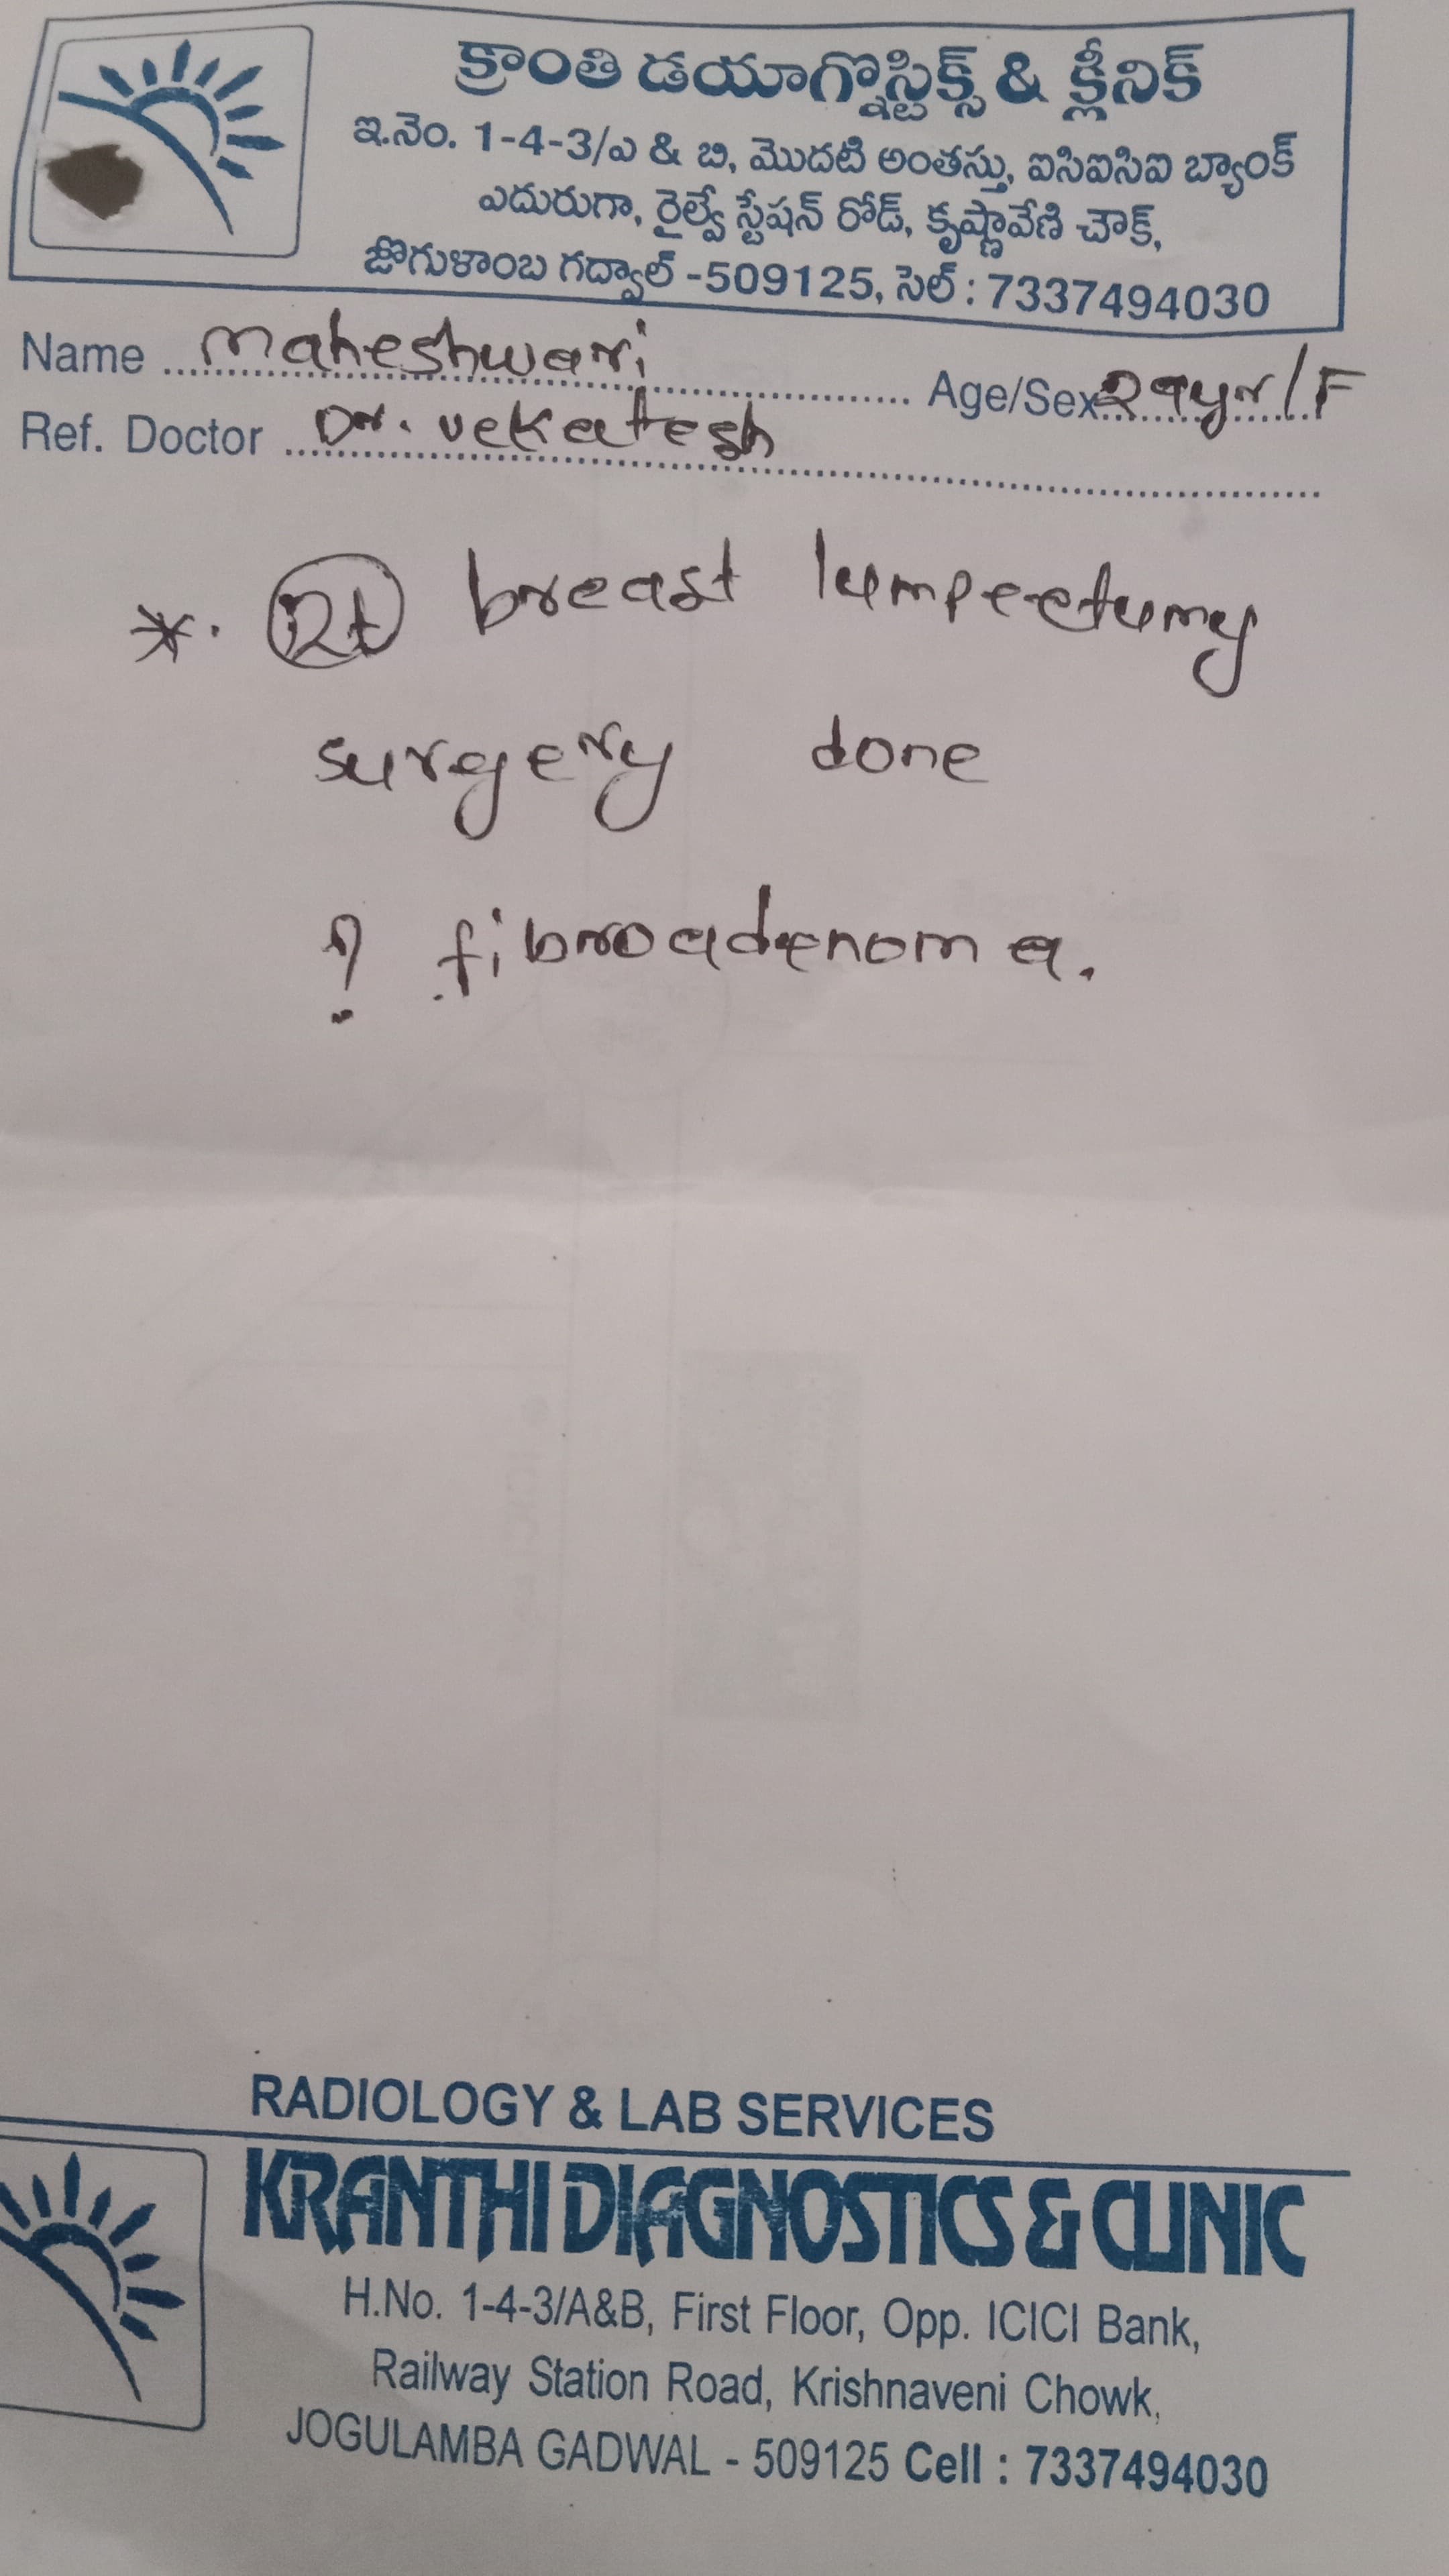 క్రాంతి డయాగ్నొస్టిక్స్ & క్లీనిక్
ఇ.నెం. 1-4-3/ఎ & బి, మొదటి అంతస్తు, ఐసిఐసిఐ బ్యాంక్
ఎదురుగా, రైల్వే స్టేషన్ రోడ్, కృష్ణావేణి చౌక్,
జొగుళాంబ గద్వాల్ -509125, సెల్ : 7337494030
Name maheshwari Age/Sex 29yr/F
Ref. Doctor Dr. vekatesh
*. Rt breast lumpectumy
surgery done
? fibroadenoma.
RADIOLOGY & LAB SERVICES
KRANTHI DIAGNOSTICS & CLINIC
H.No. 1-4-3/A&B, First Floor, Opp. ICICI Bank,
Railway Station Road, Krishnaveni Chowk,
JOGULAMBA GADWAL - 509125 Cell : 7337494030